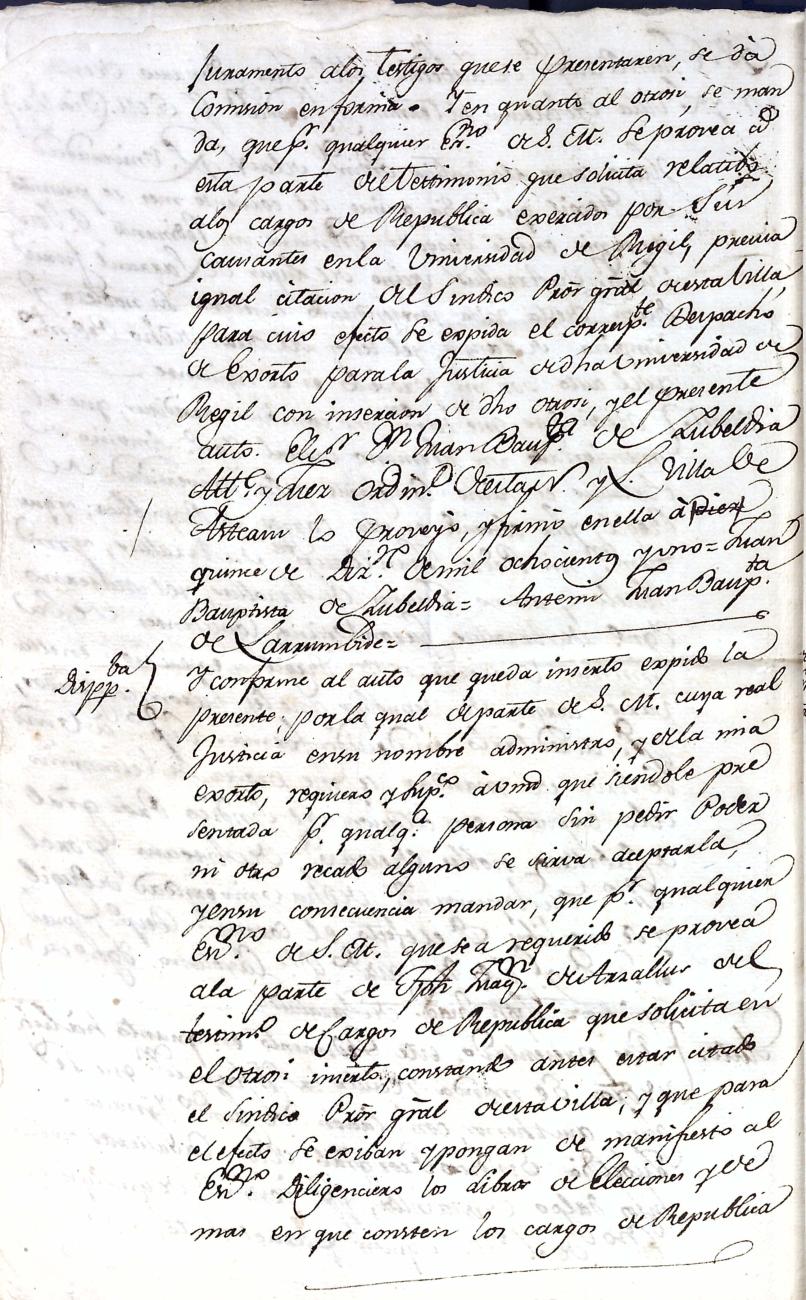 Juramento alos Testigos quese presentaren, se dà
Comision en forma. Yen quanto al otrosi, se man
da, que pr. qualquier Esno. de S. M. se provea á
esta parte del testimonio que solicita relatibo
alos cargos de Republica exercidos por sus
causantes enla Universidad de Regil, previa
igual citacion del Sindico Pror gral deesta Villa,
para cuio efecto se expida el correspte. Despacho
de Exorto parala Justicia de dha Universidad de
Regil con insercion de dho otrosi, y el presente
auto. El Sr. Dn. Juan Bauptta. de Zubeldia
Alle. y Juez ordino. deesta N. y L. Villa de
Asteasu lo proveyò, y firmò enella à diez
quince de Dizre. demil ochocientos y uno = Juan
Bauptista de Zubeldia = Antemi Juan Baupta.
de Larrumbide =
Dispp.ba
Y conforme al auto que queda inserto expido la
presente; por la qual departe de S. M. cuya real
Justicia ensu nombre administro, y dela mia
exorto, requiero y supco. àvmd que siendole pre
sentada pr. qualqa. persona sin pedir Poder
ni otro recado alguno se sirva aceptarla,
yensu consecuencia mandar, que pr. qualquier
Esno. de S. M. que sea requerido se provea
ala parte de Jph Magn. de Arzallus del
testimo. de Cargos de Republica que solicita en
el otrosi inserto, constando antes estar citado
el Sindico Pror gral deesta villa; y que para
el efecto se exiban y pongan de manifiesto al
Esno. Diligenciero los Libros de Elecciones y de
mas en que consten los cargos de Republica